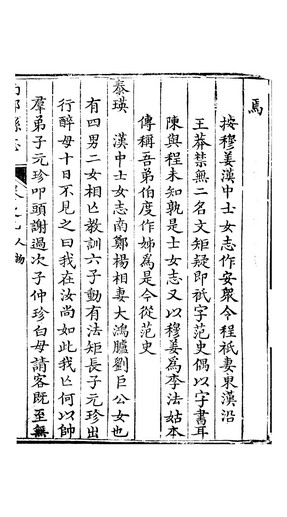 馬
按穆姜漢中士女志作安衆令程祗妻東漢沿
王莽禁無二名文矩疑即祗字范史偶以字書耳
陳與程未知孰是士女志又以穆姜爲李法姑本
傳稱吾弟伯度作姊爲是今從范史
泰瑛 漢中士女志南鄭楊相妻大鴻臚劉巨公女也
有四男二女相亡教訓六子動有法矩長子元珍出
行醉母十日不見之曰我在汝尚如此我亡何以帥
羣弟子元珍叩頭謝過次子仲珍白母請客既至無
人物